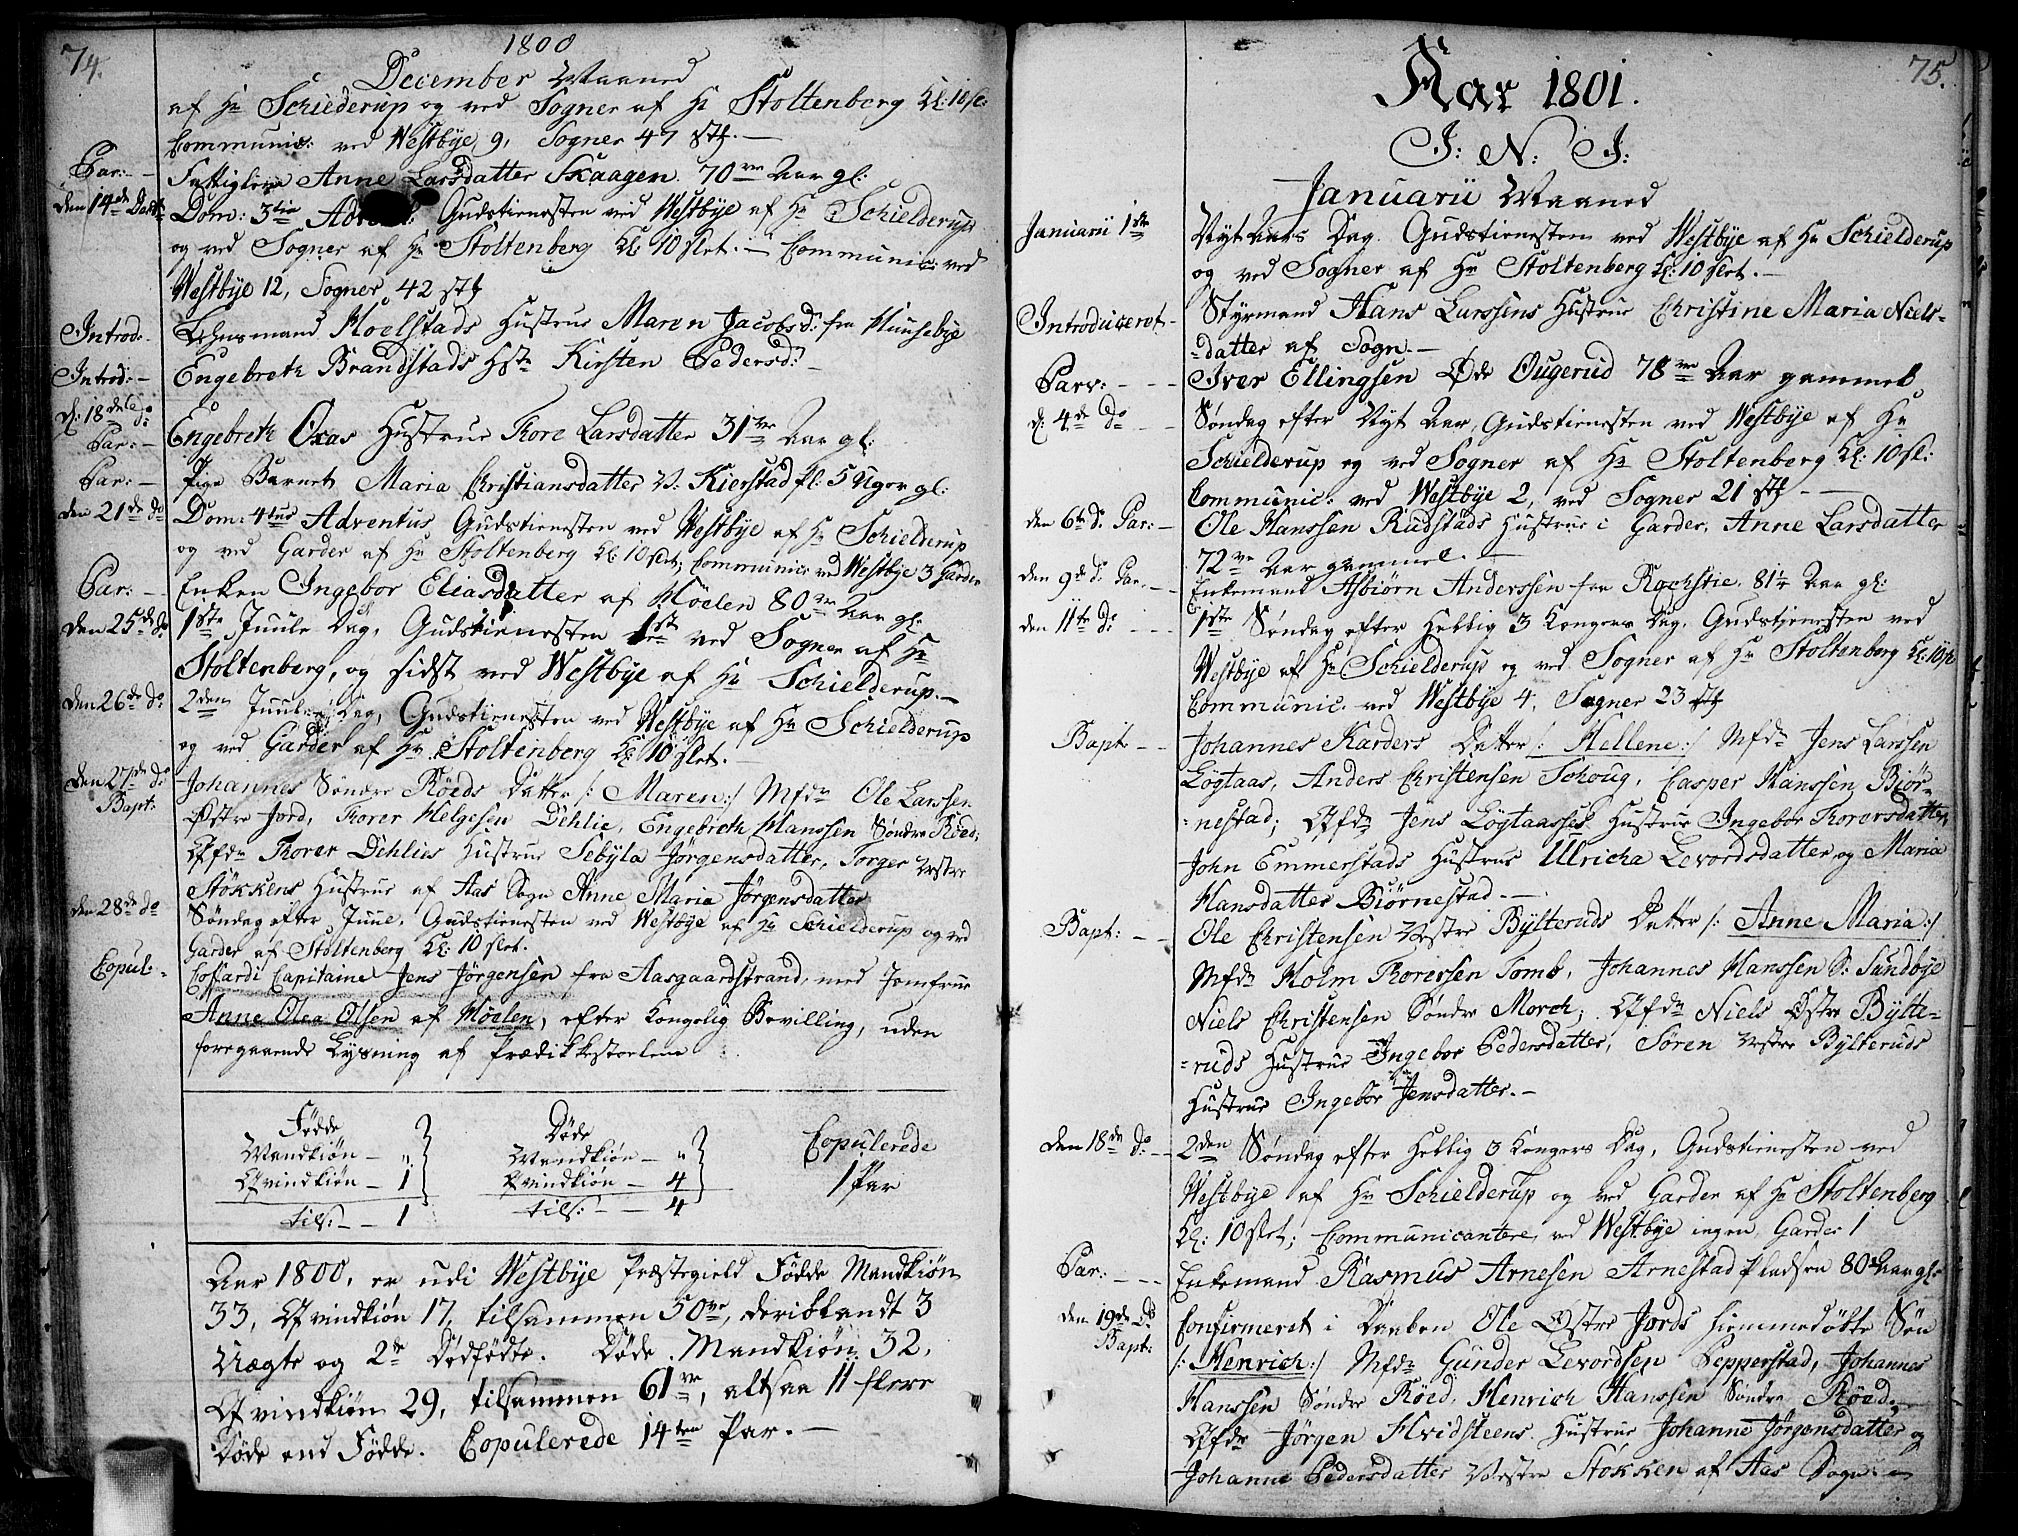 74.
1800
December Maaned
af Hr Schielderup og ved Sogner af Hr Stoltenberg Kl: 10 sl:
Communic: ved Westbye 9, Sogner 47 stk. —
Par: — Fattiglem Anne Larsdatter Skaagen 70ve Aar gl:
den 14de Decbr Dom: 3tia Advent: Gudstienesten ved Westbye af Hr Schielderup
og ved Sogner af Hr Stoltenberg Kl: 10 slet. — Communic: ved
Westbye 12, Sogner 42 stk
Introd: Lehnsmand Hoelstads Hustrue Maren Jacobsd: fra Huusebye
Introd: — Engebreth Brandstads Hste Kirsten Pedersd:
d: 18de do
Par: — Engebreth Oxas Hustrue Thore Larsdatter 31te Aar gl:
Par: — Pige Barnet Maria Christiansdatter v: Kierstad pl: 5 Uger gl:
den 21de do Dom: 4tus Adventus Gudstienesten ved Westbye af Hr Schielderup
og ved Garder af Hr Stoltenberg Kl: 10 slet; Communic: ved Westbye 3 Garder
Par: — Enken Ingebor Eliasdatter af Hölen 80ve Aar gl:
den 25de do 1ste Juule Dag, Gudstienesten 1st ved Sogner af Hr
Stoltenberg, og sidst ved Westbye af Hr Schielderup. —
den 26de do 2den Juule Dag, Gudstienesten ved Westbye af Hr Schielderup
og ved Garder af Hr Stoltenberg Kl: 10 slet. —
den 27de do
Bapt: Johannes Søndre Röeds Datter /: Maren :/ Mfdr Ole Larssen
Østre Jord, Thorer Helgesen Dehlie, Engebreth Hanssen Søndre Röed;
Qfdr Thorer Dehlies Hustrue Sebyla Jørgensdatter, Torger Vestre
Støkkens Hustrue af Aas Sogn Anne Maria Jørgensdatter
den 28de do Søndag efter Juue, Gudstienesten ved Westbye af Hr Schielderup og ved
Garder af Stoltenberg Kl: 10 slet.
Copul: Coffardi Capitaine Jens Jørgensen fra Aasgaardstrand, med Jomfrue
Anne Olea Olsen af Höelen, efter Kongelig Bevilling, uden
foregaaende Lysning af Prædikkestoelen
Fødde Døde Copulerede
Mandkiøn — „ Mandkiøn — „ 1 Par
Qvindkiøn — 1 Qvindkiøn — 4
tils: — — 1 tils: — — 4
Aar 1800, er udi Westbye Præstegield Fødde Mandkiøn
33, Qvindkiøn 17, tilsammen 50ve, deriblandt 3
Uægte og 2de Dødfødte. Døde Mandkiøn 32,
Qvindkiøn 29, tilsammen 61ve, altsaa 11 flere
Døde end Fødde. Copulerede 14ten Par. —
75.
Aar 1801.
J: N: J:
Januarii Maaned
Januarii 1ste Nyt Aars Dag Gudstienesten ved Westbye af Hr Schielderup
og ved Sogner af Hr Stoltenberg Kl: 10 slet. —
Introduceret — Styrmand Hans Larssens Hustrue Christine Maria Niels-
-datter af Sogn. —
Parv: — — — Iver Ellingsen Øde Ougerud 78ve Aar gammel
d: 4de do Søndag efter Nyt Aar, Gudstienesten ved Westbye af Hr
Schielderup og ved Sogner af Hr Stoltenberg Kl: 10 sl:
Communic: ved Westbye 2, ved Sogner 21 stk —
den 6te do Par: — Ole Hanssen Rudstads Hustrue i Garder, Anne Larsdatter
72ve Aar gammel. —
den 9de do Par. — Enkemand Asbiørn Anderssen fra Kochstie 81te Aar gl:
den 11te do — — 1ste Søndag efter Hellig 3 Kongers Dag, Gudstjenesten ved
Westbye af Hr Schielderup og ved Sogner af Hr Stoltenberg Kl: 10 sl
Communic. ved Westbye 4, Sogner 23 stk
Bapt: — — Johannes Karders Datter /: Hellene :/ Mfdr Jens Larssen
Løgtaas, Anders Christensen Schoug, Casper Hanssen Biør-
-nestad; Qfdr Jens Løgtaasses Hustrue Ingebor Thorersdatter,
John Emmerstads Hustrue Ulricha Levordsdatter og Maria
Hansdatter Biørnestad —
Bapt: — — Ole Christensen Vestre Bylteruds Datter /: Anne Maria :/
Mfdr Holm Thorersen Tomb, Johannes Hanssen S: Sundbye
Niels Christensen Søndre Morch; Qfdr Niels Østre Bylte-
-ruds Hustrue Ingebor Pedersdatter, Søren Vestre Bylteruds
Hustrue Ingebor Jensdatter. —
den 18de do — 2den Søndag efter Hellig 3 Kongers Dag, Gudstienesten ved
Westbye af Hr Schielderup og ved Garder af Hr Stoltenberg
Kl: 10 slet; Communicantere ved Westbye ingen, Garder 1
Par: — — — Enkemand Rasmus Arnesen Arnestad Pladsen 80 Aar gl:
den 19de do
Bapt: Confirmeret i Daaben Ole Østre Jords hiemmedøbte Søn
/: Henrich :/ Mfdr Gunder Levordsen Pepperstad, Johannes
Hanssen Søndre Röed, Henrich Hanssen Søndre Röed;
Qfdr Jørgen Hvidsteens Hustrue Johanne Jørgensdatter og
Johanne Pedersdatter Vestre Støkken af Aas Sogn —